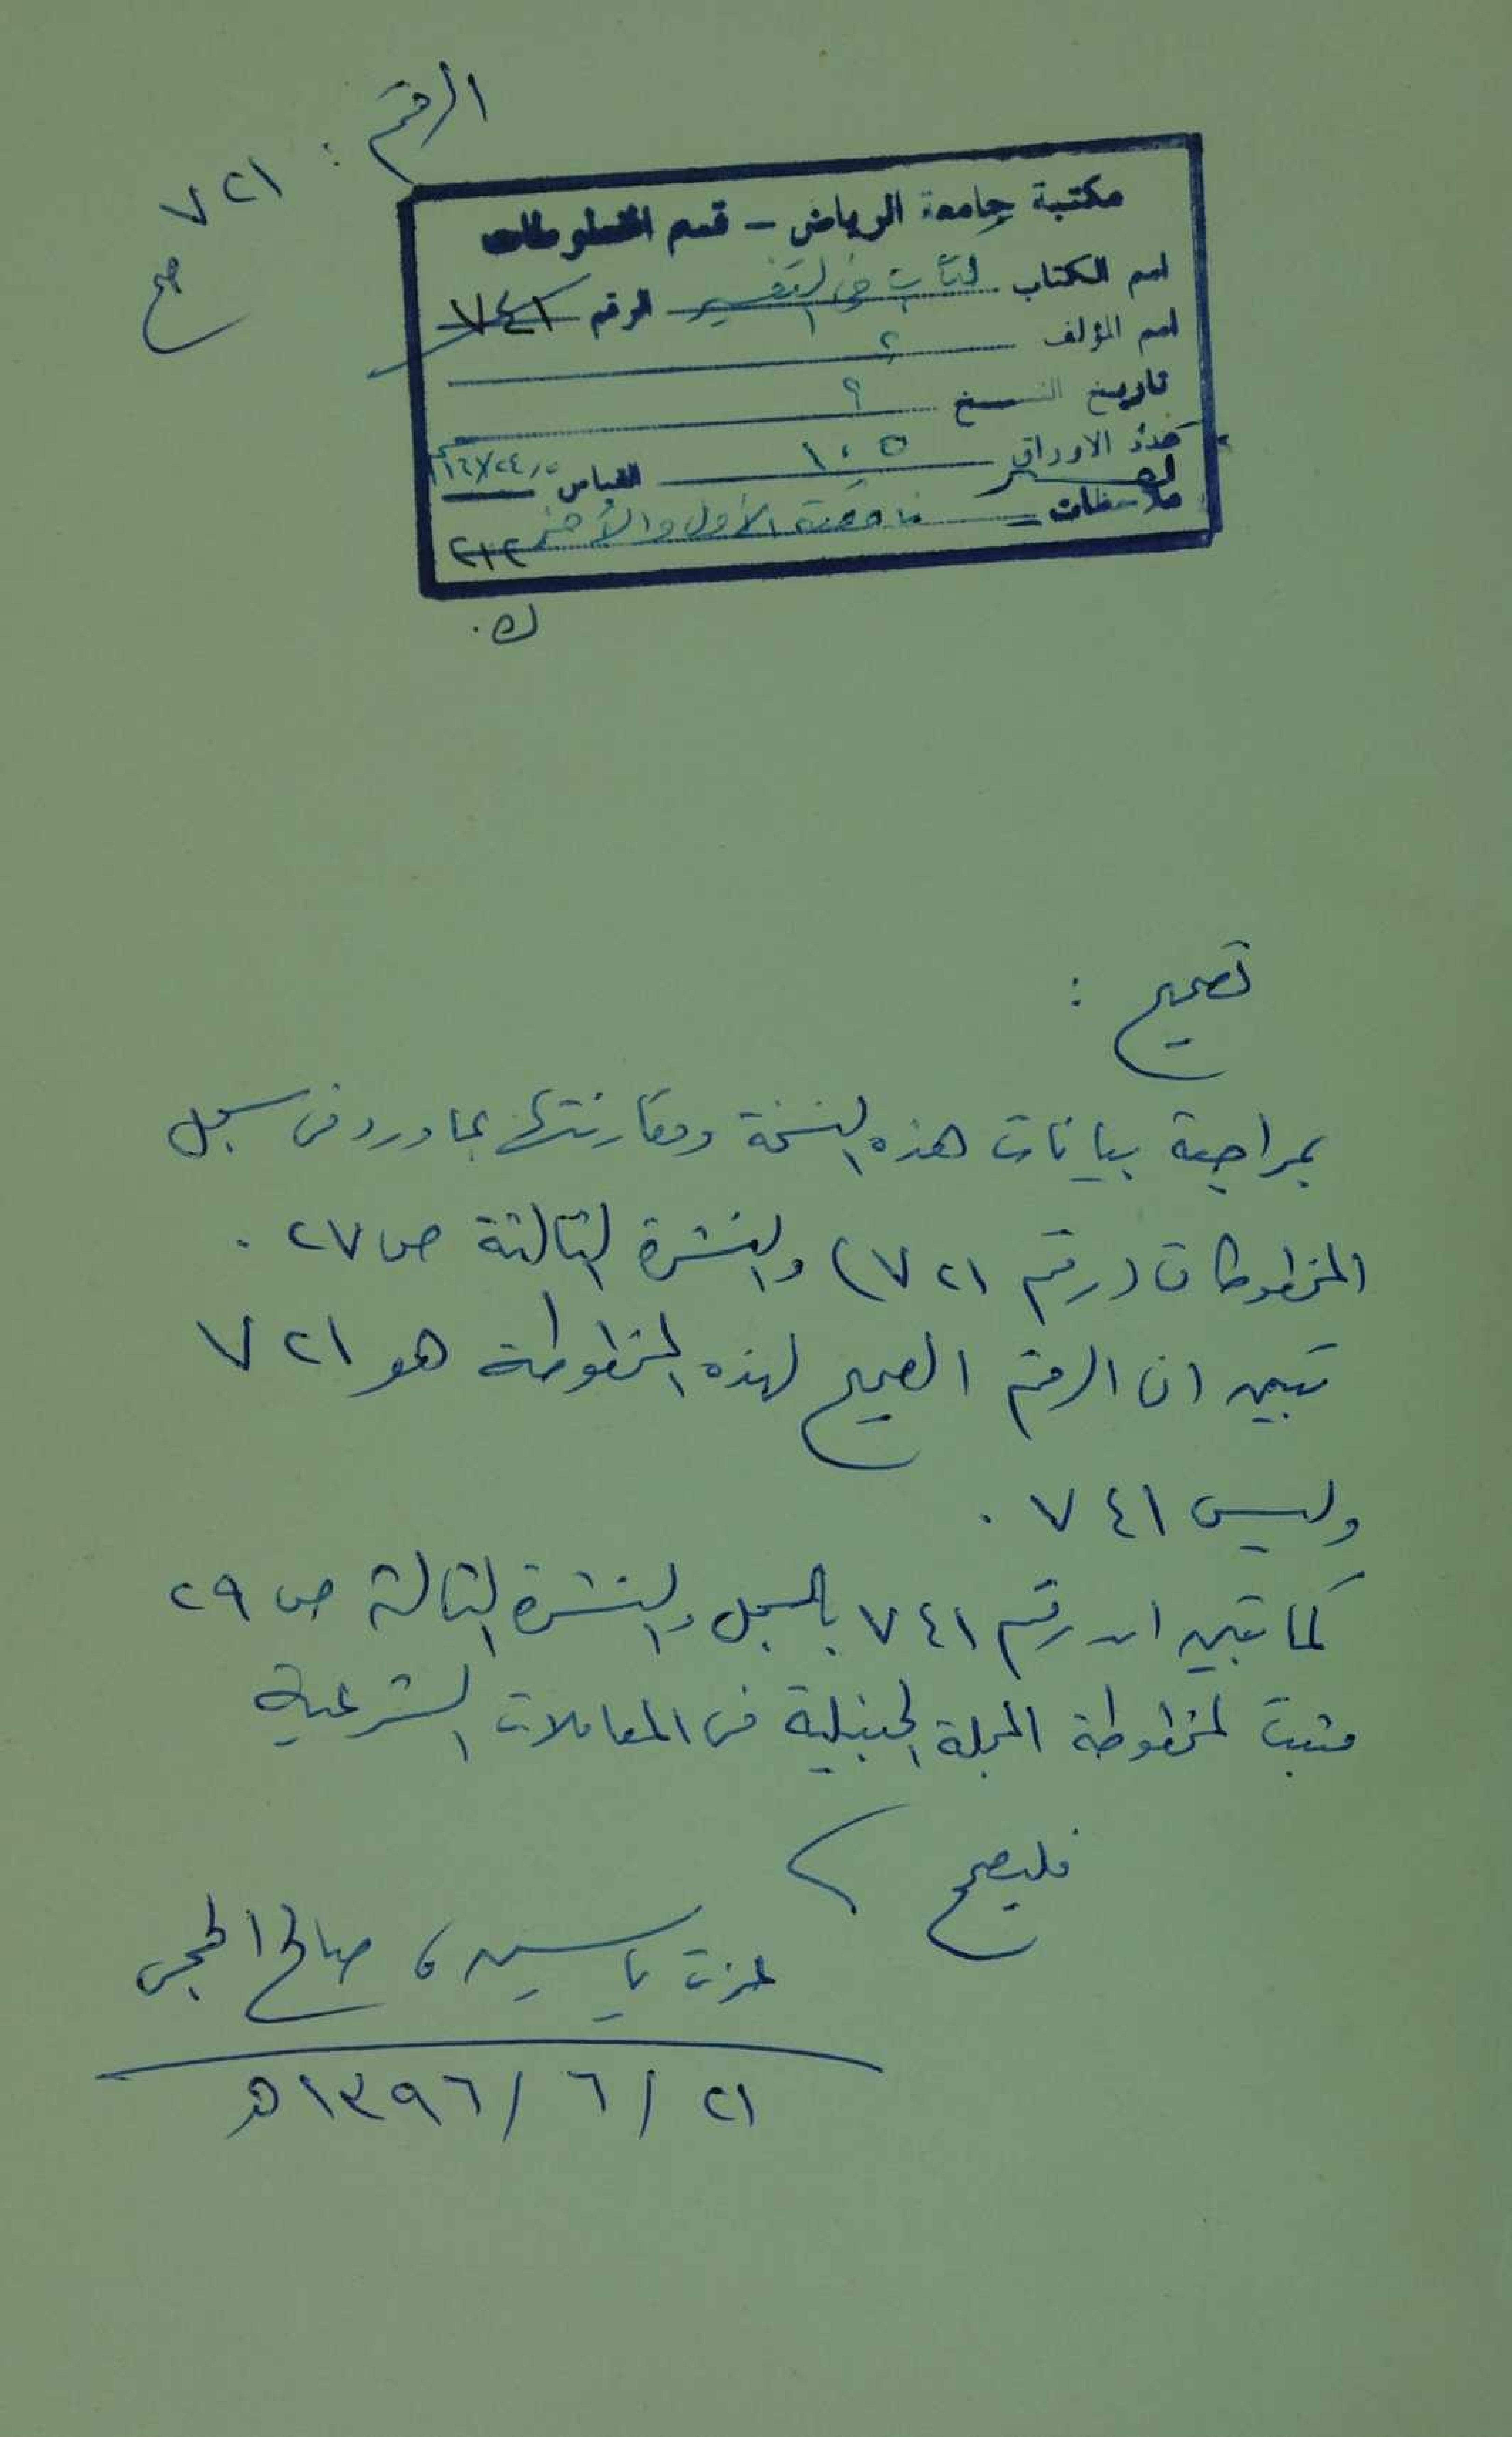 الرقم : ٧٢١
صح
مكتبة جامعة الرياض - قسم المخطوطات
اسم الكتاب كتاب في التفسير الرقم ٧٤١
اسم المؤلف ؟
تاريخ النسخ ؟
عدد الاوراق ١٠٥ القياس
ملاحظات - ناقصة الأول والأخر ٢١٢
ك.
تصحيح :
بمراجعة بيانات هذه النسخة ومقارنتها بما ورد في سجل
المخطوطات (رقم ٧٢١) والنشرة الثالثة ص ٢٧ .
تبين ان الرقم الصحيح لهذه المخطوطة هو ٧٢١
وليس ٧٤١ .
كما تبين ان رقم ٧٤١ بالسجل والنشرة الثالثة ص ٢٩
مثبت لمخطوطة المجلة الحنبلية في المعاملات الشرعية
فليصحح
عزت ياسين، صالح الحجي
٢١ / ٦ / ١٣٩٦ ه